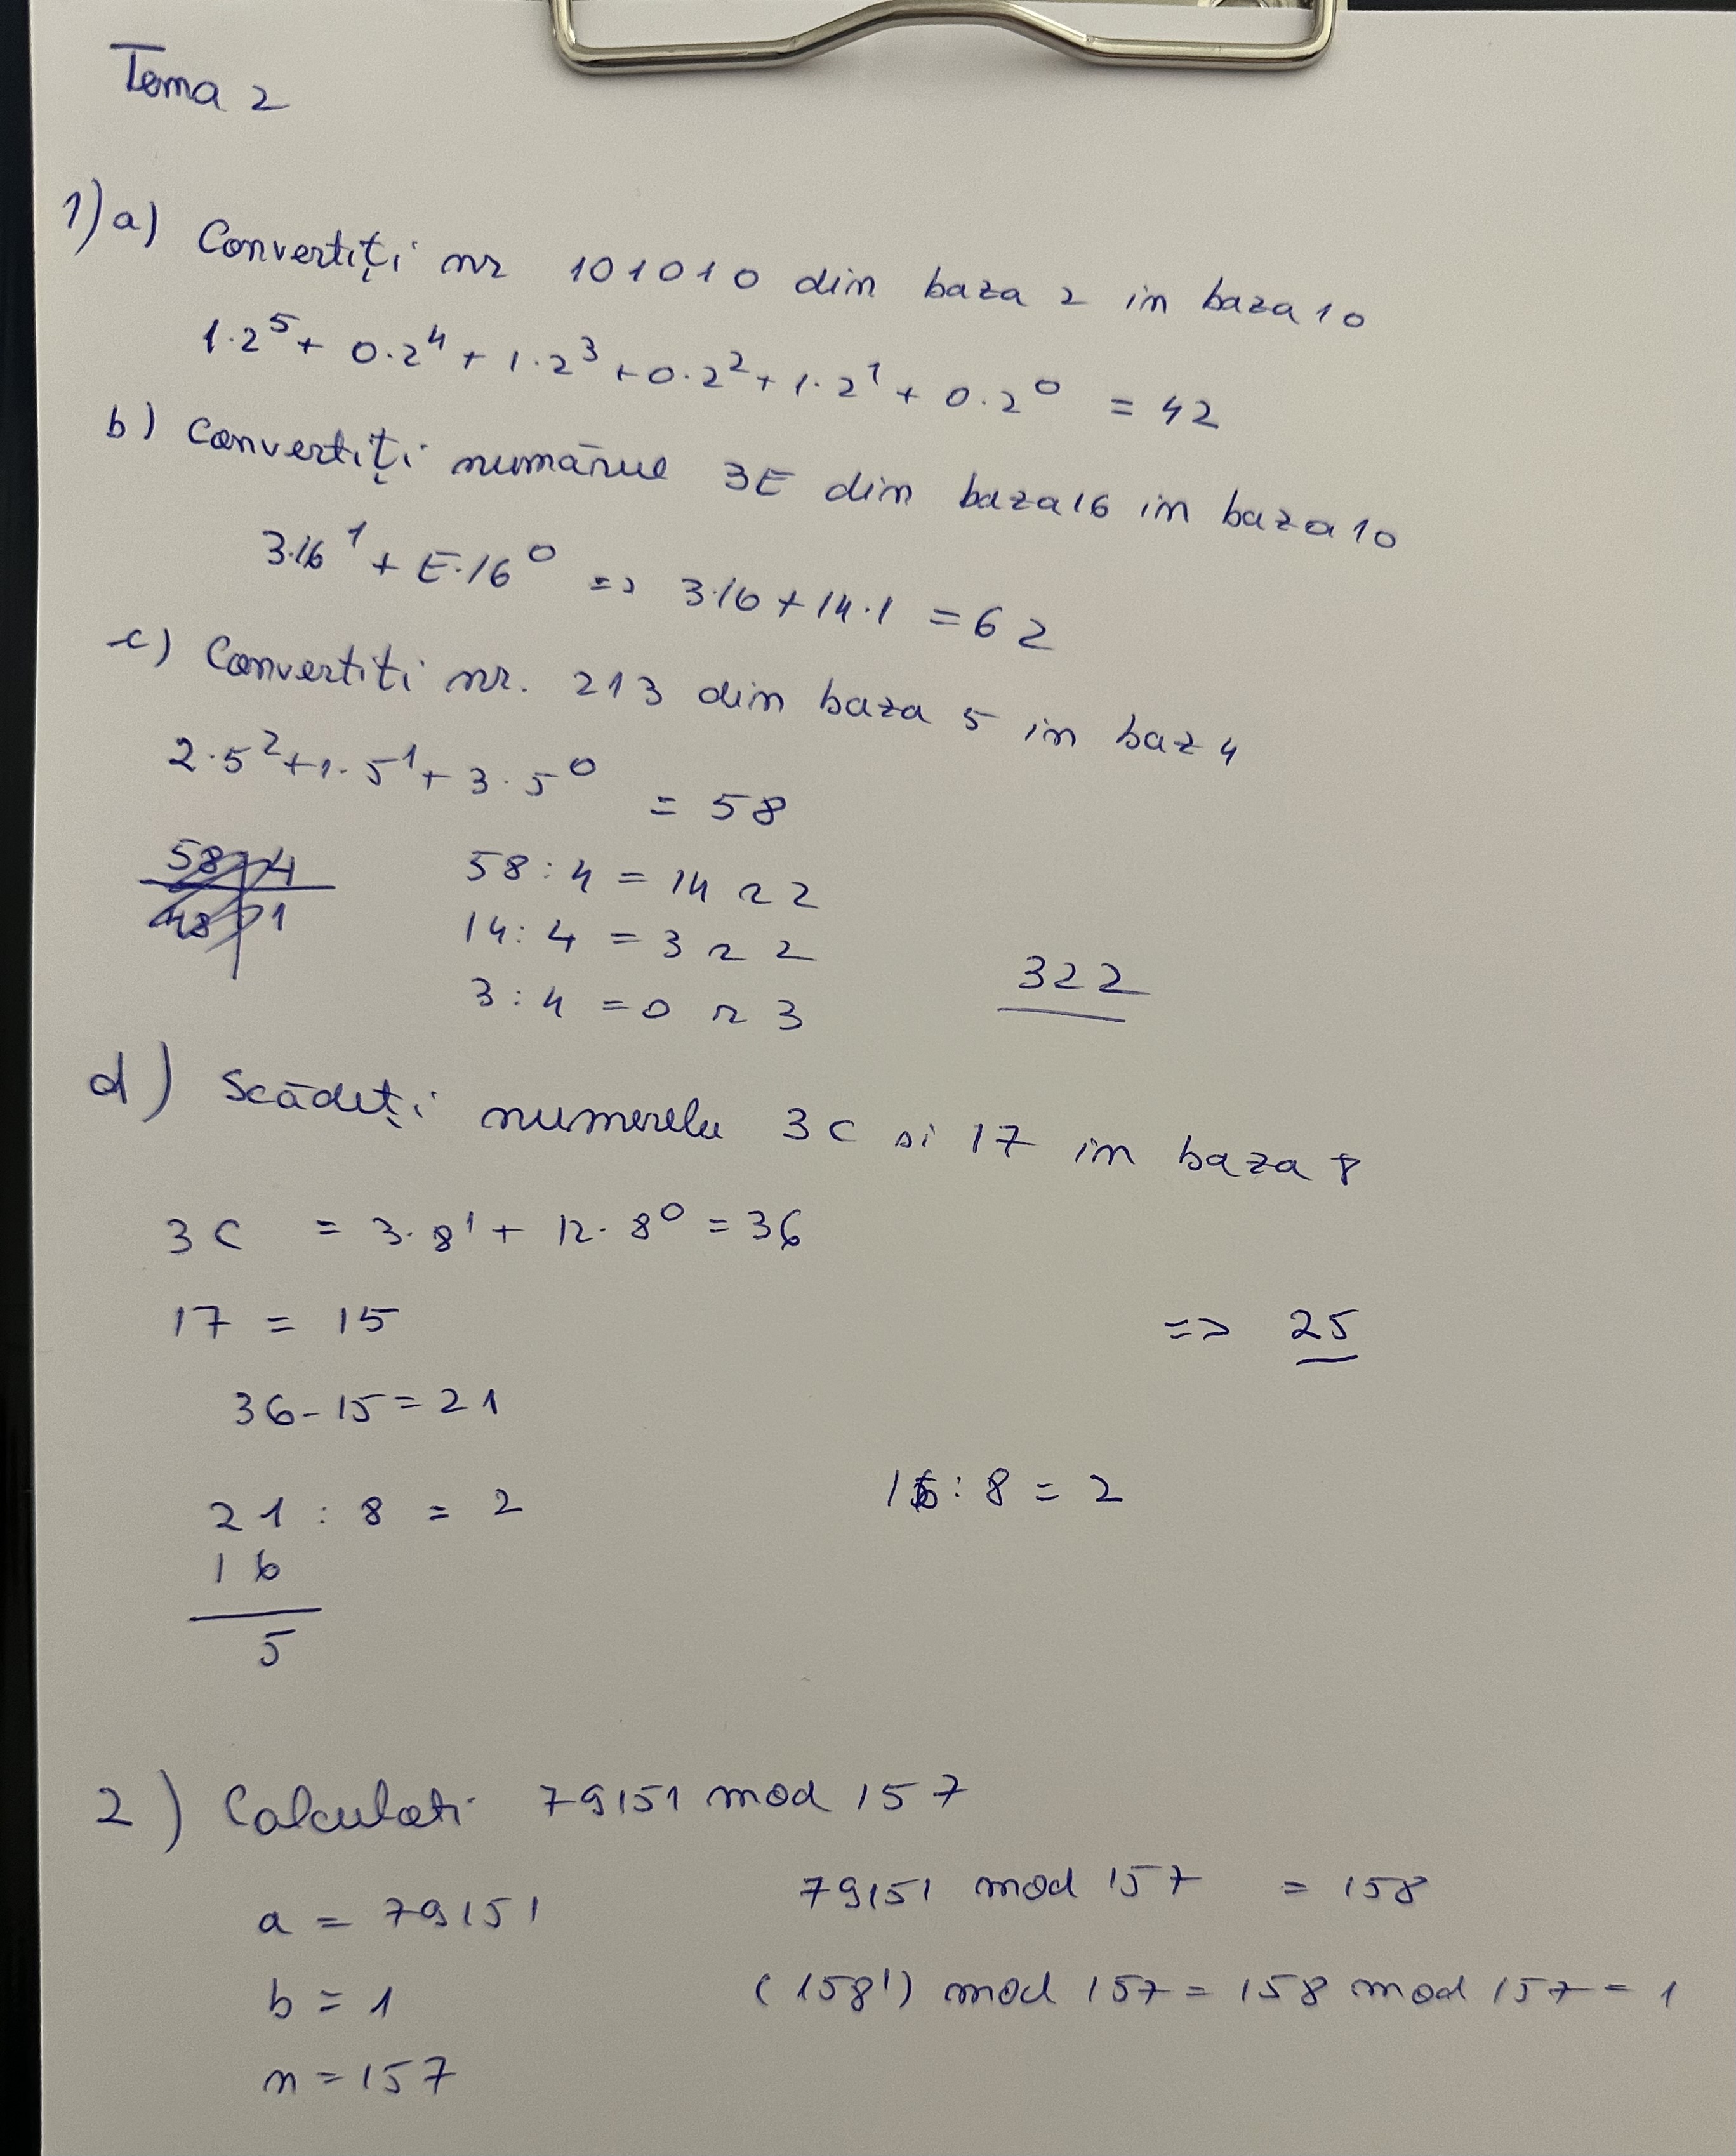 Tema 2
1) a) Convertiți nr 101010 din baza 2 in baza 10
1·2⁵ + 0·2⁴ + 1·2³ + 0·2² + 1·2¹ + 0·2⁰ = 42
b) Convertiți numărul 3E din baza 16 in baza 10
3·16¹ + E·16⁰ => 3·16 + 14·1 = 62
c) Convertiti nr. 213 din baza 5 in baz 4
2·5² + 1·5¹ + 3·5⁰ = 58
58 : 4 = 14 r 2
14 : 4 = 3 r 2
322
3 : 4 = 0 r 3
d) Scădeți numerele 3C si 17 in baza 8
3C = 3·8¹ + 12·8⁰ = 36
17 = 15
=> 25
36 - 15 = 21
21 : 8 = 2
16 : 8 = 2
16
5
2) Calculati 79151 mod 157
79151 mod 157 = 158
a = 79151
b = 1
(158¹) mod 157 = 158 mod 157 = 1
n = 157